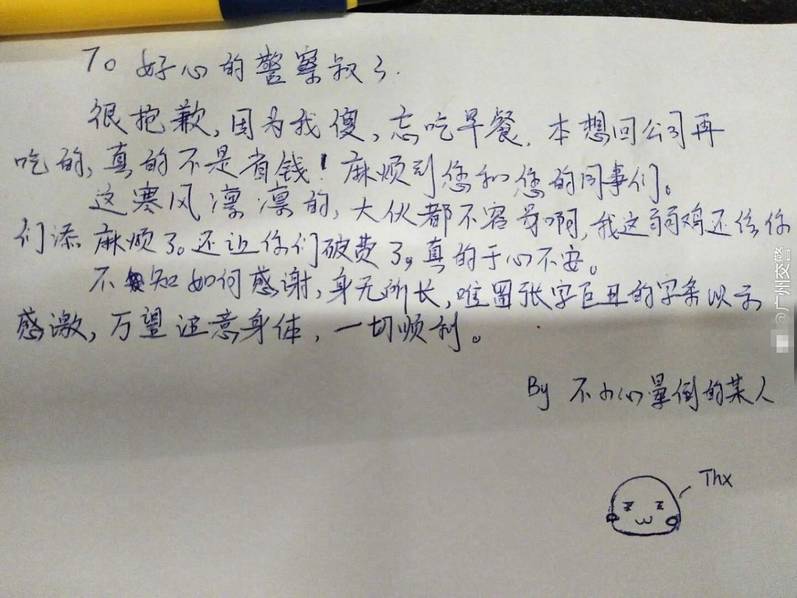 To 好心的警察叔叔.
很抱歉,因为我傻,忘吃早餐.本想回公司再
吃的,真的不是省钱!麻烦到您和您的同事们。
这寒风凛凛的,大伙都不容易啊,我这弱鸡还给你
们添麻烦了。还让你们破费了,真的于心不安。
不知如何感谢,身无所长,唯留张字巨丑的字条以示
感激,万望注意身体,一切顺利。
By 不小心晕倒的某人
Thx
@广州交警